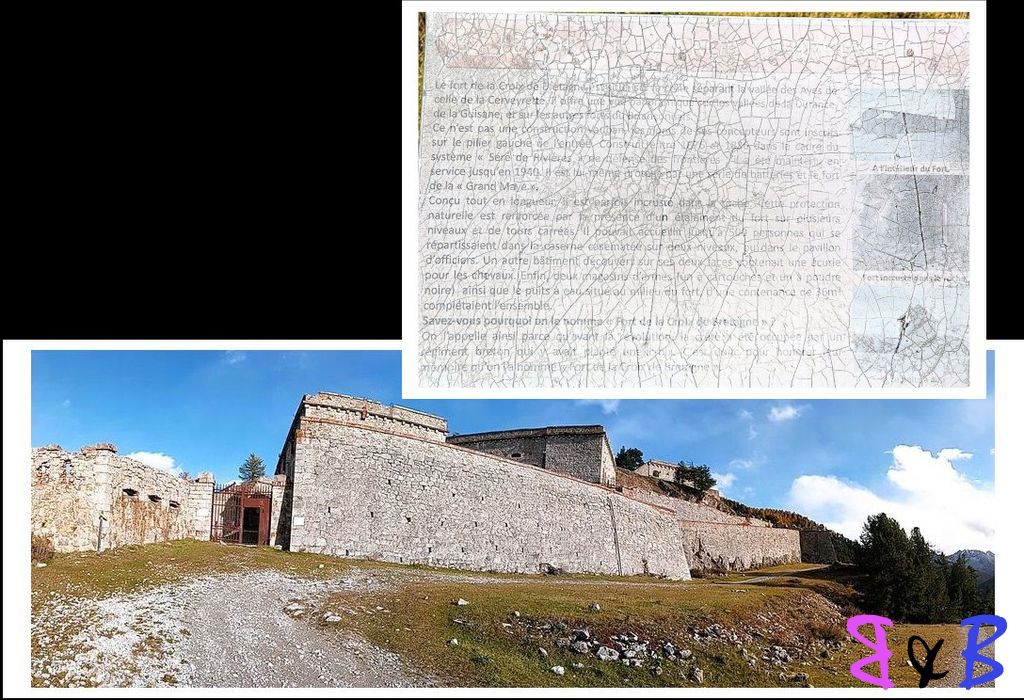 Le fort de la Croix de Bretagne est situé sur la crête séparant la vallée des Ayes de
celle de la Cerveyrette, il offre une vue sur les vallées de la Durance,
de la Guisane, et sur les autres forts du
Ce n'est pas une construction Vauban les noms de ses concepteurs sont inscrits
sur le pilier gauche de l'entrée. Construit entre 1876 et dans le cadre du
système « Séré de Rivières » de défense des frontières il a été maintenu en
service jusqu'en 1940. Il est lui-même protégé par une série de batteries et le fort
de la « Grand Maye ».
Conçu tout en longueur, il est parfois incrusté dans la roche. Cette protection
naturelle est renforcée par la présence d'un étalement du fort sur plusieurs
niveaux et de tours carrées. Il pouvait accueillir personnes qui se
répartissaient dans la caserne casematée sur deux niveaux, ou dans le pavillon
d'officiers. Un autre bâtiment découvert sur ses deux faces contenait une écurie
pour les chevaux. Enfin, deux magasins d'armes (un à cartouches et un à poudre
noire), ainsi que le puits à eau situé au milieu du fort, d'une contenance de 36m³
complétaient l'ensemble.
Savez-vous pourquoi on le nomme « Fort de la Croix de Bretagne » ?
On l'appelle ainsi parce qu'avant la révolution, la crête a été occupée par un
régiment breton qui y avait planté une croix. C'est donc pour honorer
mémoire qu'on l'a nommé « Fort de la Croix de Bretagne ».
A l'intérieur du Fort.
Fort incrusté dans la roche
B & B